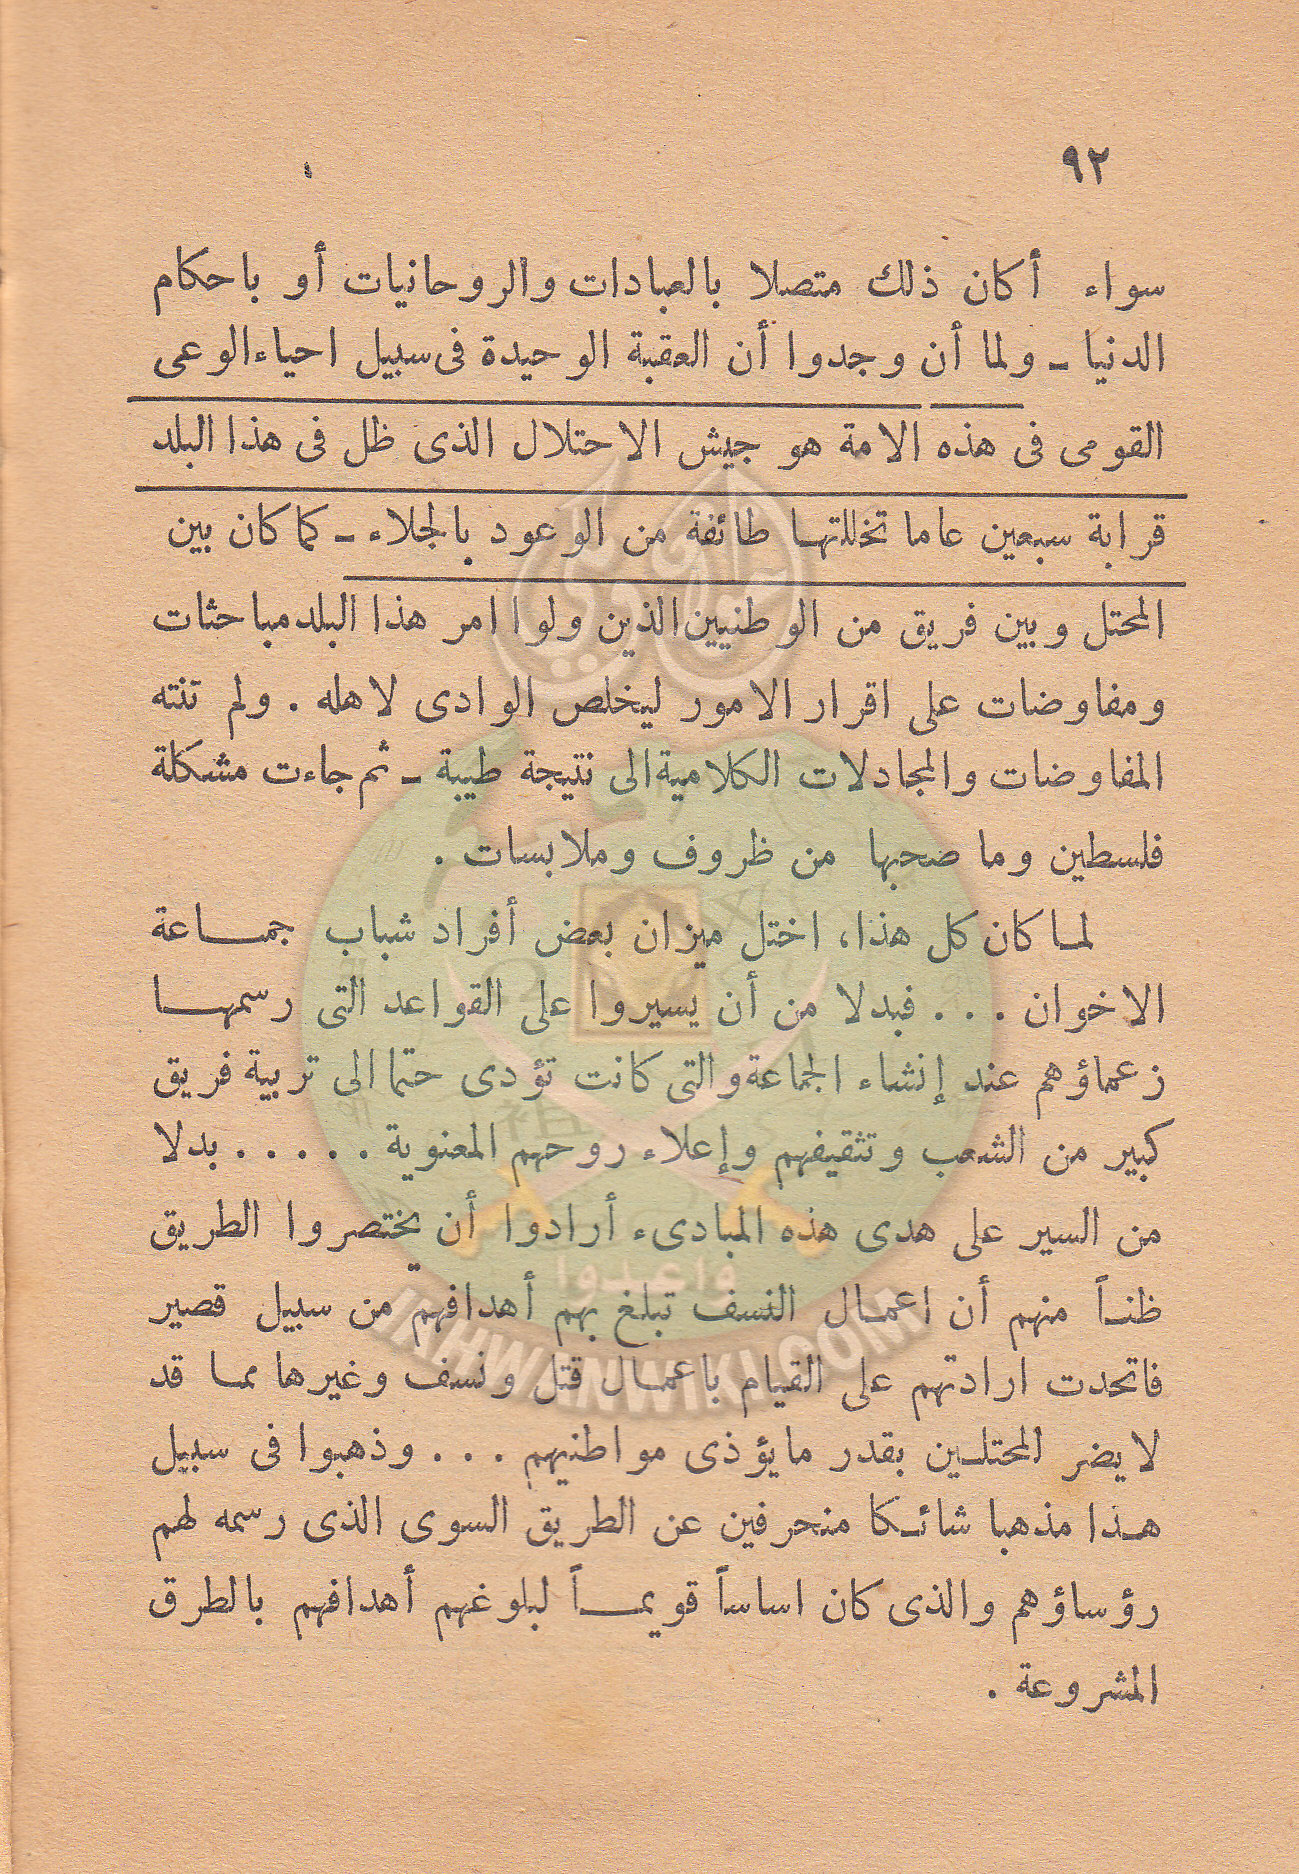 ٩٢
سواء أكان ذلك متصلا بالعبادات والروحانيات أو باحكام
الدنيا ـ ولما أن وجدوا أن العقبة الوحيدة فى سبيل احياء الوعى
القومى فى هذه الامة هو جيش الاحتلال الذى ظل فى هذا البلد
قرابة سبعين عاما تخللتها طائفة من الوعود بالجلاء ـ كما كان بين
المحتل وبين فريق من الوطنيين الذين ولوا امر هذا البلد مباحثات
ومفاوضات على اقرار الامور ليخلص الوادى لاهله . ولم تنته
المفاوضات والمجادلات الكلامية الى نتيجة طيبة ـ ثم جاءت مشكلة
فلسطين وما صحبها من ظروف وملابسات .
لما كان كل هذا، اختل ميزان بعض أفراد شباب جماعة
الاخوان . . . فبدلا من أن يسيروا على القواعد التى رسمها
زعماؤهم عند إنشاء الجماعة والتى كانت تؤدى حتما الى تربية فريق
كبير من الشعب وتثقيفهم وإعلاء روحهم المعنوية . . . . . بدلا
من السير على هدى هذه المبادىء أرادوا أن يختصروا الطريق
ظناً منهم أن اعمال النسف تبلغ بهم أهدافهم من سبيل قصير
فاتحدت ارادتهم على القيام باعمال قتل ونسف وغيرها مما قد
لا يضر المحتلين بقدر ما يؤذى مواطنيهم . . . وذهبوا فى سبيل
هذا مذهبا شائكا منحرفين عن الطريق السوى الذى رسمه لهم
رؤساؤهم والذى كان اساساً قويماً لبلوغهم أهدافهم بالطرق
المشروعة .
واعدوا
IKHWANWIKI.COM